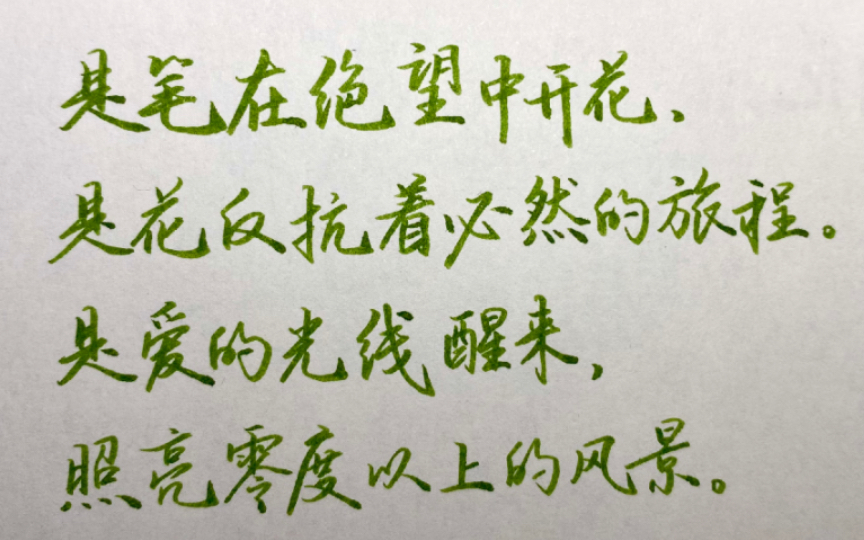 是笔在绝望中开花、
是花反抗着必然的旅程。
是爱的光线醒来,
照亮零度以上的风景。